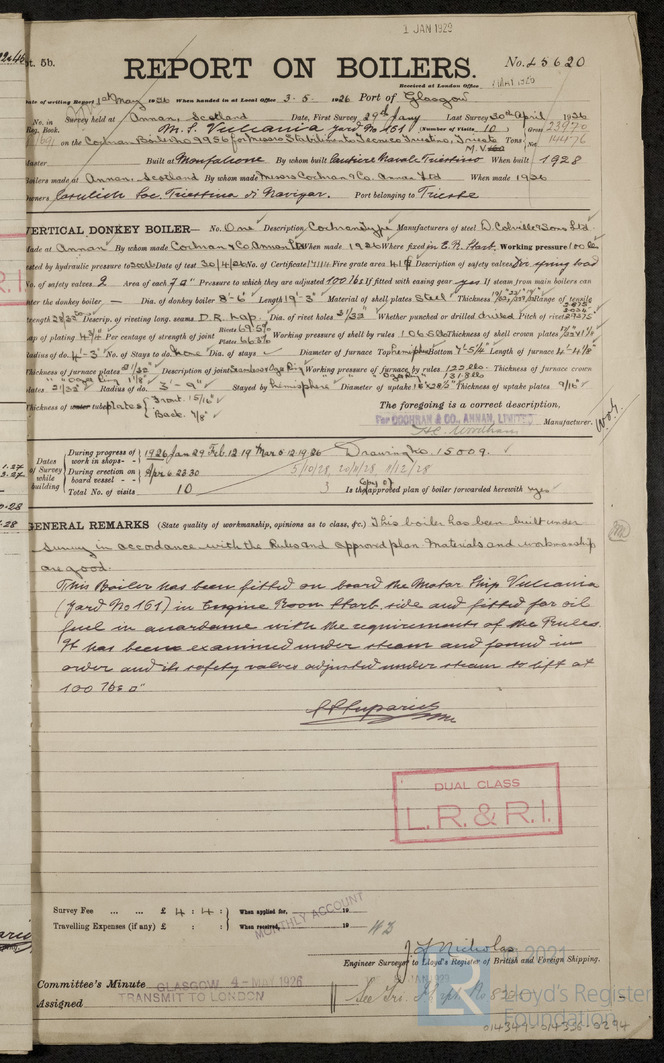 1 JAN 1929
Rpt. 5b.
REPORT ON BOILERS.
No. 45620
Received at London Office
Date of writing Report 1st May 1926 When handed in at Local Office 3.5.1926 Port of Glasgow
No. in Survey held at Annan, Scotland Date, First Survey 29th Jany Last Survey 30th April 1926
Reg. Book. (Number of Visits 10) Gross 23970
M.S. Vulcania Yard No 161
on the Cochran Boiler No 9950 for Messrs Stabilimento Tecnico Triestino, Trieste Tons Net 14476
Master Built at Monfalcone By whom built Cantiere Navale Triestino When built 1928
Boilers made at Annan, Scotland By whom made Messrs Cochran & Co. Annan Ltd When made 1926
Owners Cosulich Soc. Triestina di Navigaz. Port belonging to Trieste
VERTICAL DONKEY BOILER— No. One Description Cochran Type Manufacturers of steel D. Colville & Sons Ltd
Made at Annan By whom made Cochran & Co Annan Ltd When made 1926 Where fixed in E.R. Starb. Working pressure 100 lbs
tested by hydraulic pressure to 200 lbs Date of test 30/4/26 No. of Certificate Fire grate area 41 Description of safety valves Dbr spring load
No. of safety valves 2 Area of each 7 Pressure to which they are adjusted 100 lbs If fitted with easing gear yes If steam from main boilers can
enter the donkey boiler — Dia. of donkey boiler 8'-6" Length 19'-3" Material of shell plates Steel Thickness Range of tensile
strength 28/32 Descrip. of riveting long. seams D.R. Lap. Dia. of rivet holes 31/32" Whether punched or drilled drilled Pitch of rivets
Lap of plating 4 3/4" Per centage of strength of joint Rivets 69.5% Plates 66.3% Working pressure of shell by rules 106.5 lbs Thickness of shell crown plates
Radius of do. 4'-3" No. of Stays to do. None Dia. of stays Diameter of furnace Top hemisphere Bottom 7'-5 3/4" Length of furnace
Thickness of furnace plates 21/32" Description of joint Seamless Ogee Ring Working pressure of furnace by rules 122 lbs. Thickness of furnace crown
" " Ogee Ring 1 1/8" " Ogee Ring 131.8 lbs
plates 21/32" Radius of do. 3'-9" Stayed by hemisphere Diameter of uptake Thickness of uptake plates 9/16"
Thickness of water tube plates Front. 15/16" Back. 7/8"
The foregoing is a correct description,
For COCHRAN & CO., ANNAN, LIMITED Manufacturer.
Dates of Survey while building
During progress of work in shops - - 1926 Jan 29 Feb 12.19 Mar 5.12.19.26 Drawing No. 15009.
During erection on board vessel - - Apr 6.23.30 5/10/28 20/11/28 8/12/28
Total No. of visits 10 3 Is the copy of approved plan of boiler forwarded herewith yes
GENERAL REMARKS (State quality of workmanship, opinions as to class, &c.) This boiler has been built under
survey in accordance with the Rules and approved plan. Materials and workmanship
are good.
This Boiler has been fitted on board the Motor Ship Vulcania
(Yard No 161) in Engine Room Starb. side and fitted for oil
fuel in accordance with the requirements of the Rules.
It has been examined under steam and found in
order and its safety valves adjusted under steam to lift at
100 lbs □"
DUAL CLASS
L.R. & R.I.
Survey Fee ... ... £ 4 : 4 : When applied for, 19
Travelling Expenses (if any) £ : : When received, 19
MONTHLY ACCOUNT
J.F. Nicholas
Engineer Surveyor to Lloyd's Register of British and Foreign Shipping.
Committee's Minute GLASGOW 4-MAY 1926
Assigned TRANSMIT TO LONDON
2021
Lloyd's Register
Foundation
014349-014356-0294